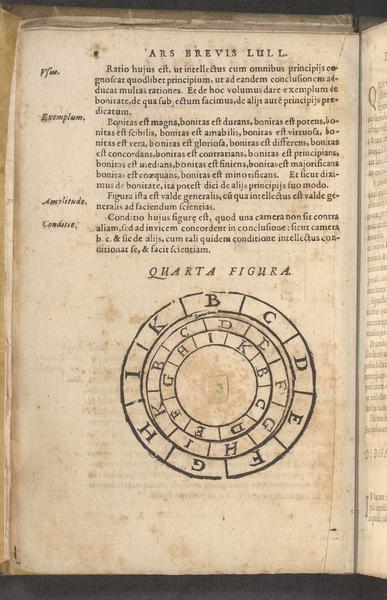 ARS BREVIS LULL.
Usus.
Ratio hujus est, ut intellectus cum omnibus principijs co-
gnoscat quodlibet principium, ut ad eandem conclusionem ad-
ducat multas rationes. Et de hoc volumus dare exemplum de
bonitate, de qua subjectum facimus, de alijs autē principijs præ-
dicatum.
Exemplum.
Bonitas est magna, bonitas est durans, bonitas est potens, bo-
nitas est scibilis, bonitas est amabilis, bonitas est virtuosa, bo-
nitas est vera, bonitas est gloriosa, bonitas est differens, bonitas
est concordans, bonitas est contrarians, bonitas est principians,
bonitas est medians, bonitas est finiens, bonitas est majorificans
bonitas est coæquans, bonitas est minorificans. Et sicut dixi-
mus de bonitate, ita potest dici de alijs principijs suo modo.
Amplitudo.
Figura ista est valde generalis, cū qua intellectus est valde ge-
neralis ad faciendum scientias.
Conditio.
Conditio hujus figuræ est, quod una camera non sit contra
aliam, sed ad invicem concordent in conclusione: sicut camera
b c. & sic de alijs, cum tali quidem conditione intellectus con-
ditionat se, & facit scientiam.
QUARTA FIGURA.
B C D E F G H I K
B C D E F G H I K
B C D E F G H I K